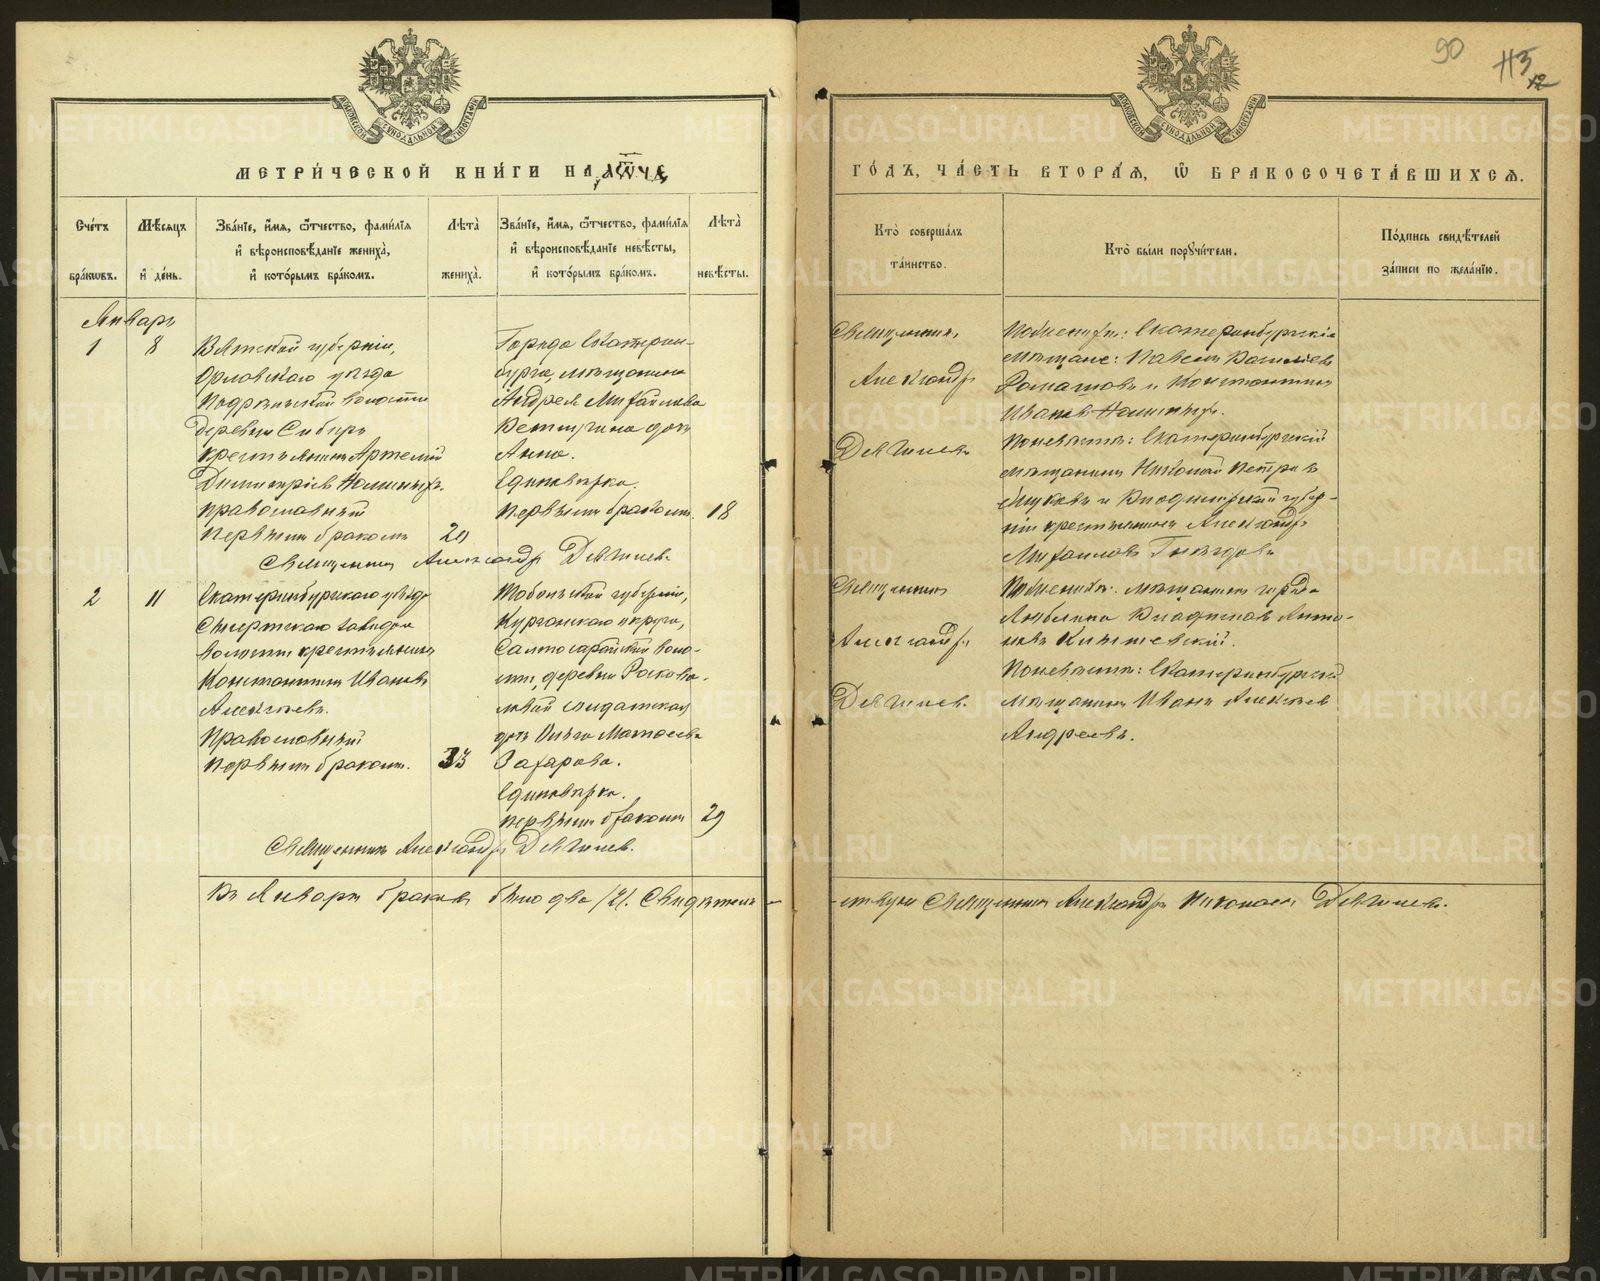 90
113
МЕТРИЧЕСКОЙ КНИГИ НА
ГОДЪ, ЧАСТЬ ВТОРАЯ, Ѡ БРАКОСОЧЕТАВШИХСЯ.
Счетъ браковъ.
Мѣсяцъ и день.
Званіе, имя, ѿчество, фамилія
и вѣроисповѣданіе жениха,
и которымъ бракомъ.
Лѣта жениха.
Званіе, имя, ѿчество, фамилія
и вѣроисповѣданіе невѣсты,
и которымъ бракомъ.
Лѣта невѣсты.
Кто совершалъ
таинство.
Кто были поручители.
Подпись свидѣтелей
записи по желанію.
Январь
1 8
Вятской губерніи,
Орловскаго уѣзда
волости
деревни Сибирь
крестьянинъ Артемій
Димитріевъ
православный
первымъ бракомъ
Города Екатерин-
бурга, мѣщанина
Андрея Михайлова
дочь
Анна.
Единовѣрка.
Первымъ бракомъ. 18
Священникъ
Александръ
Дягилевъ
По женихѣ: Екатеринбургскіе
мѣщане: Павелъ Васильевъ
Ромашовъ и Константинъ
Ивановъ
По невѣстѣ: Екатеринбургскій
мѣщанинъ Николай Петровъ
и Владимірской губер-
ніи крестьянинъ Александръ
Михайловъ
Священникъ Александръ Дягилевъ
2 11
Екатеринбургскаго уѣзда
завода
волости крестьянинъ
Константинъ Ивановъ
Алексѣевъ.
Православный
первымъ бракомъ. 33
Тобольской губерніи,
Курганскаго округа,
Салтосарайской воло-
сти, деревни
солдатская
дочь Ольга Матвеева
Захарова.
Единовѣрка.
первымъ бракомъ 29
Священникъ
Александръ
Дягилевъ.
По женихѣ: мѣщанинъ города
Люблина Владиславъ Анто-
новъ
По невѣстѣ: Екатеринбургскій
мѣщанинъ Иванъ Алексѣевъ
Андреевъ.
Священникъ Александръ Дягилевъ.
Въ Январѣ браковъ было два /2/. Свидѣтель-
-ствую Священникъ Александръ Николаевъ Дягилевъ.
METRIKI.GASO-URAL.RU